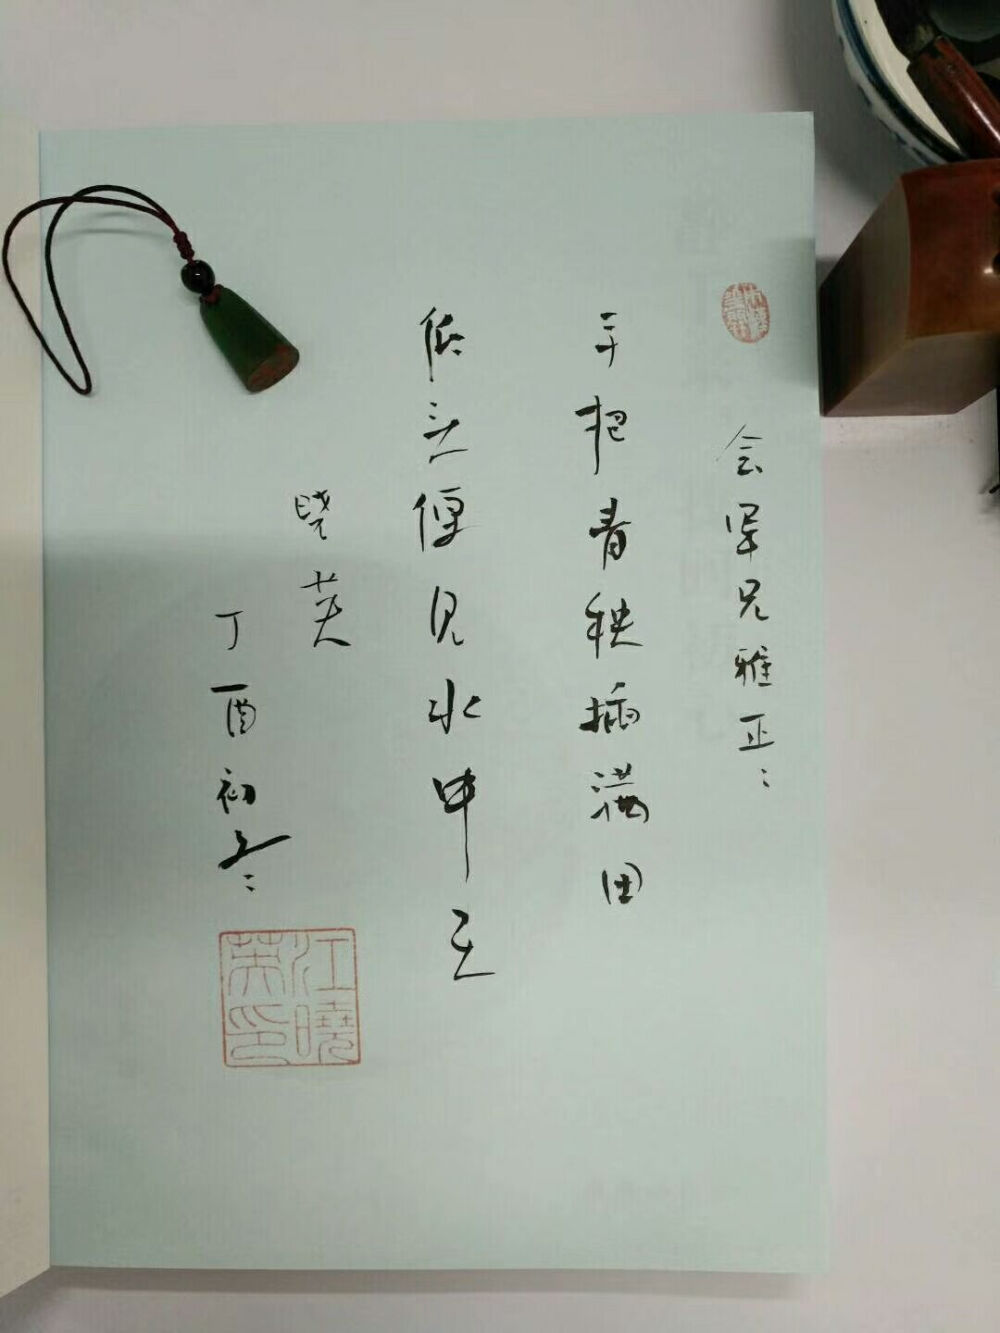 会军兄雅正
手把青秧插满田
低头便见水中天
晓英
丁酉初冬
江曉英印